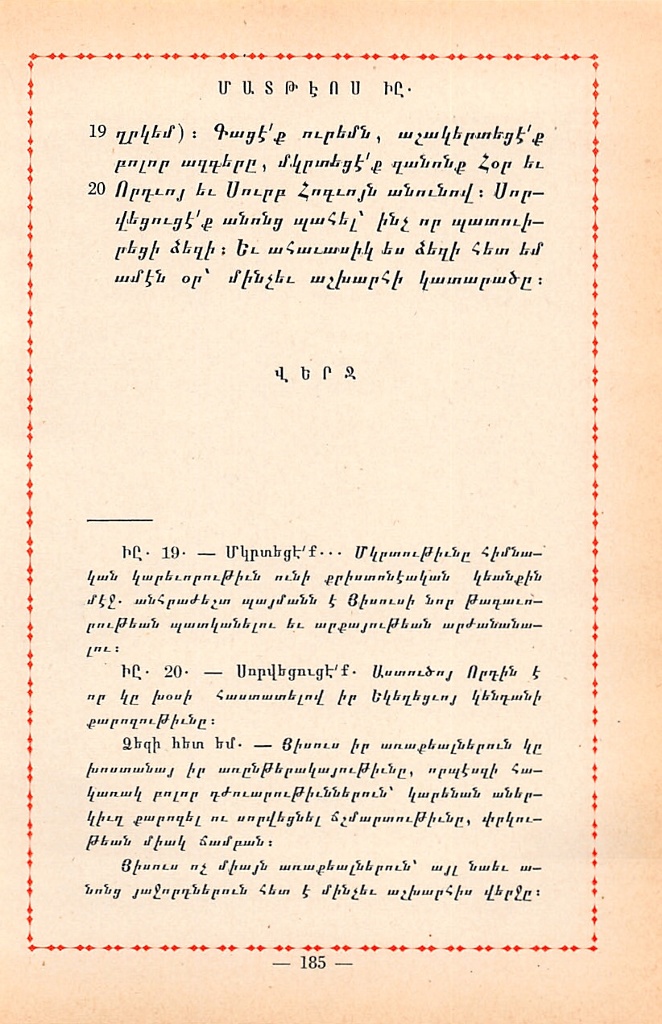 ՄԱՏԹԷՈՍ ԻԸ.
19 ղրկեմ)։ Գացէ՛ք ուրեմն, աշակերտեցէ՛ք
բոլոր ազգերը, մկրտեցէ՛ք զանոնք Հօր եւ
20 Որդւոյ եւ Սուրբ Հոգւոյն անունով։ Սոր-
վեցուցէ՛ք անոնց պահել՝ ինչ որ պատուի-
րեցի ձեզի։ Եւ ահաւասիկ ես ձեզի հետ եմ
ամէն օր՝ մինչեւ աշխարհի կատարածը։
ՎԵՐՋ
ԻԸ. 19. — Մկրտեցէ՛ք... Մկրտութիւնը հիմնա-
կան կարեւորութիւն ունի քրիստոնէական կեանքին
մէջ. անհրաժեշտ պայմանն է Յիսուսի նոր թագաւո-
րութեան պատկանելու եւ արքայութեան արժանանա-
լու։
ԻԸ. 20. — Սորվեցուցէ՛ք. Աստուծոյ Որդին է
որ կը խօսի հաստատելով իր Եկեղեցւոյ կենդանի
քարոզութիւնը։
Ձեզի հետ եմ. — Յիսուս իր առաքեալներուն կը
խոստանայ իր առընթերակայութիւնը, որպէսզի հա-
կառակ բոլոր դժուարութիւններուն՝ կարենան աներ-
կիւղ քարոզել ու սորվեցնել ճշմարտութիւնը, փրկու-
թեան միակ ճամբան։
Յիսուս ոչ միայն առաքեալներուն՝ այլ նաեւ ա-
նոնց յաջորդներուն հետ է մինչեւ աշխարհիս վերջը։
— 185 —